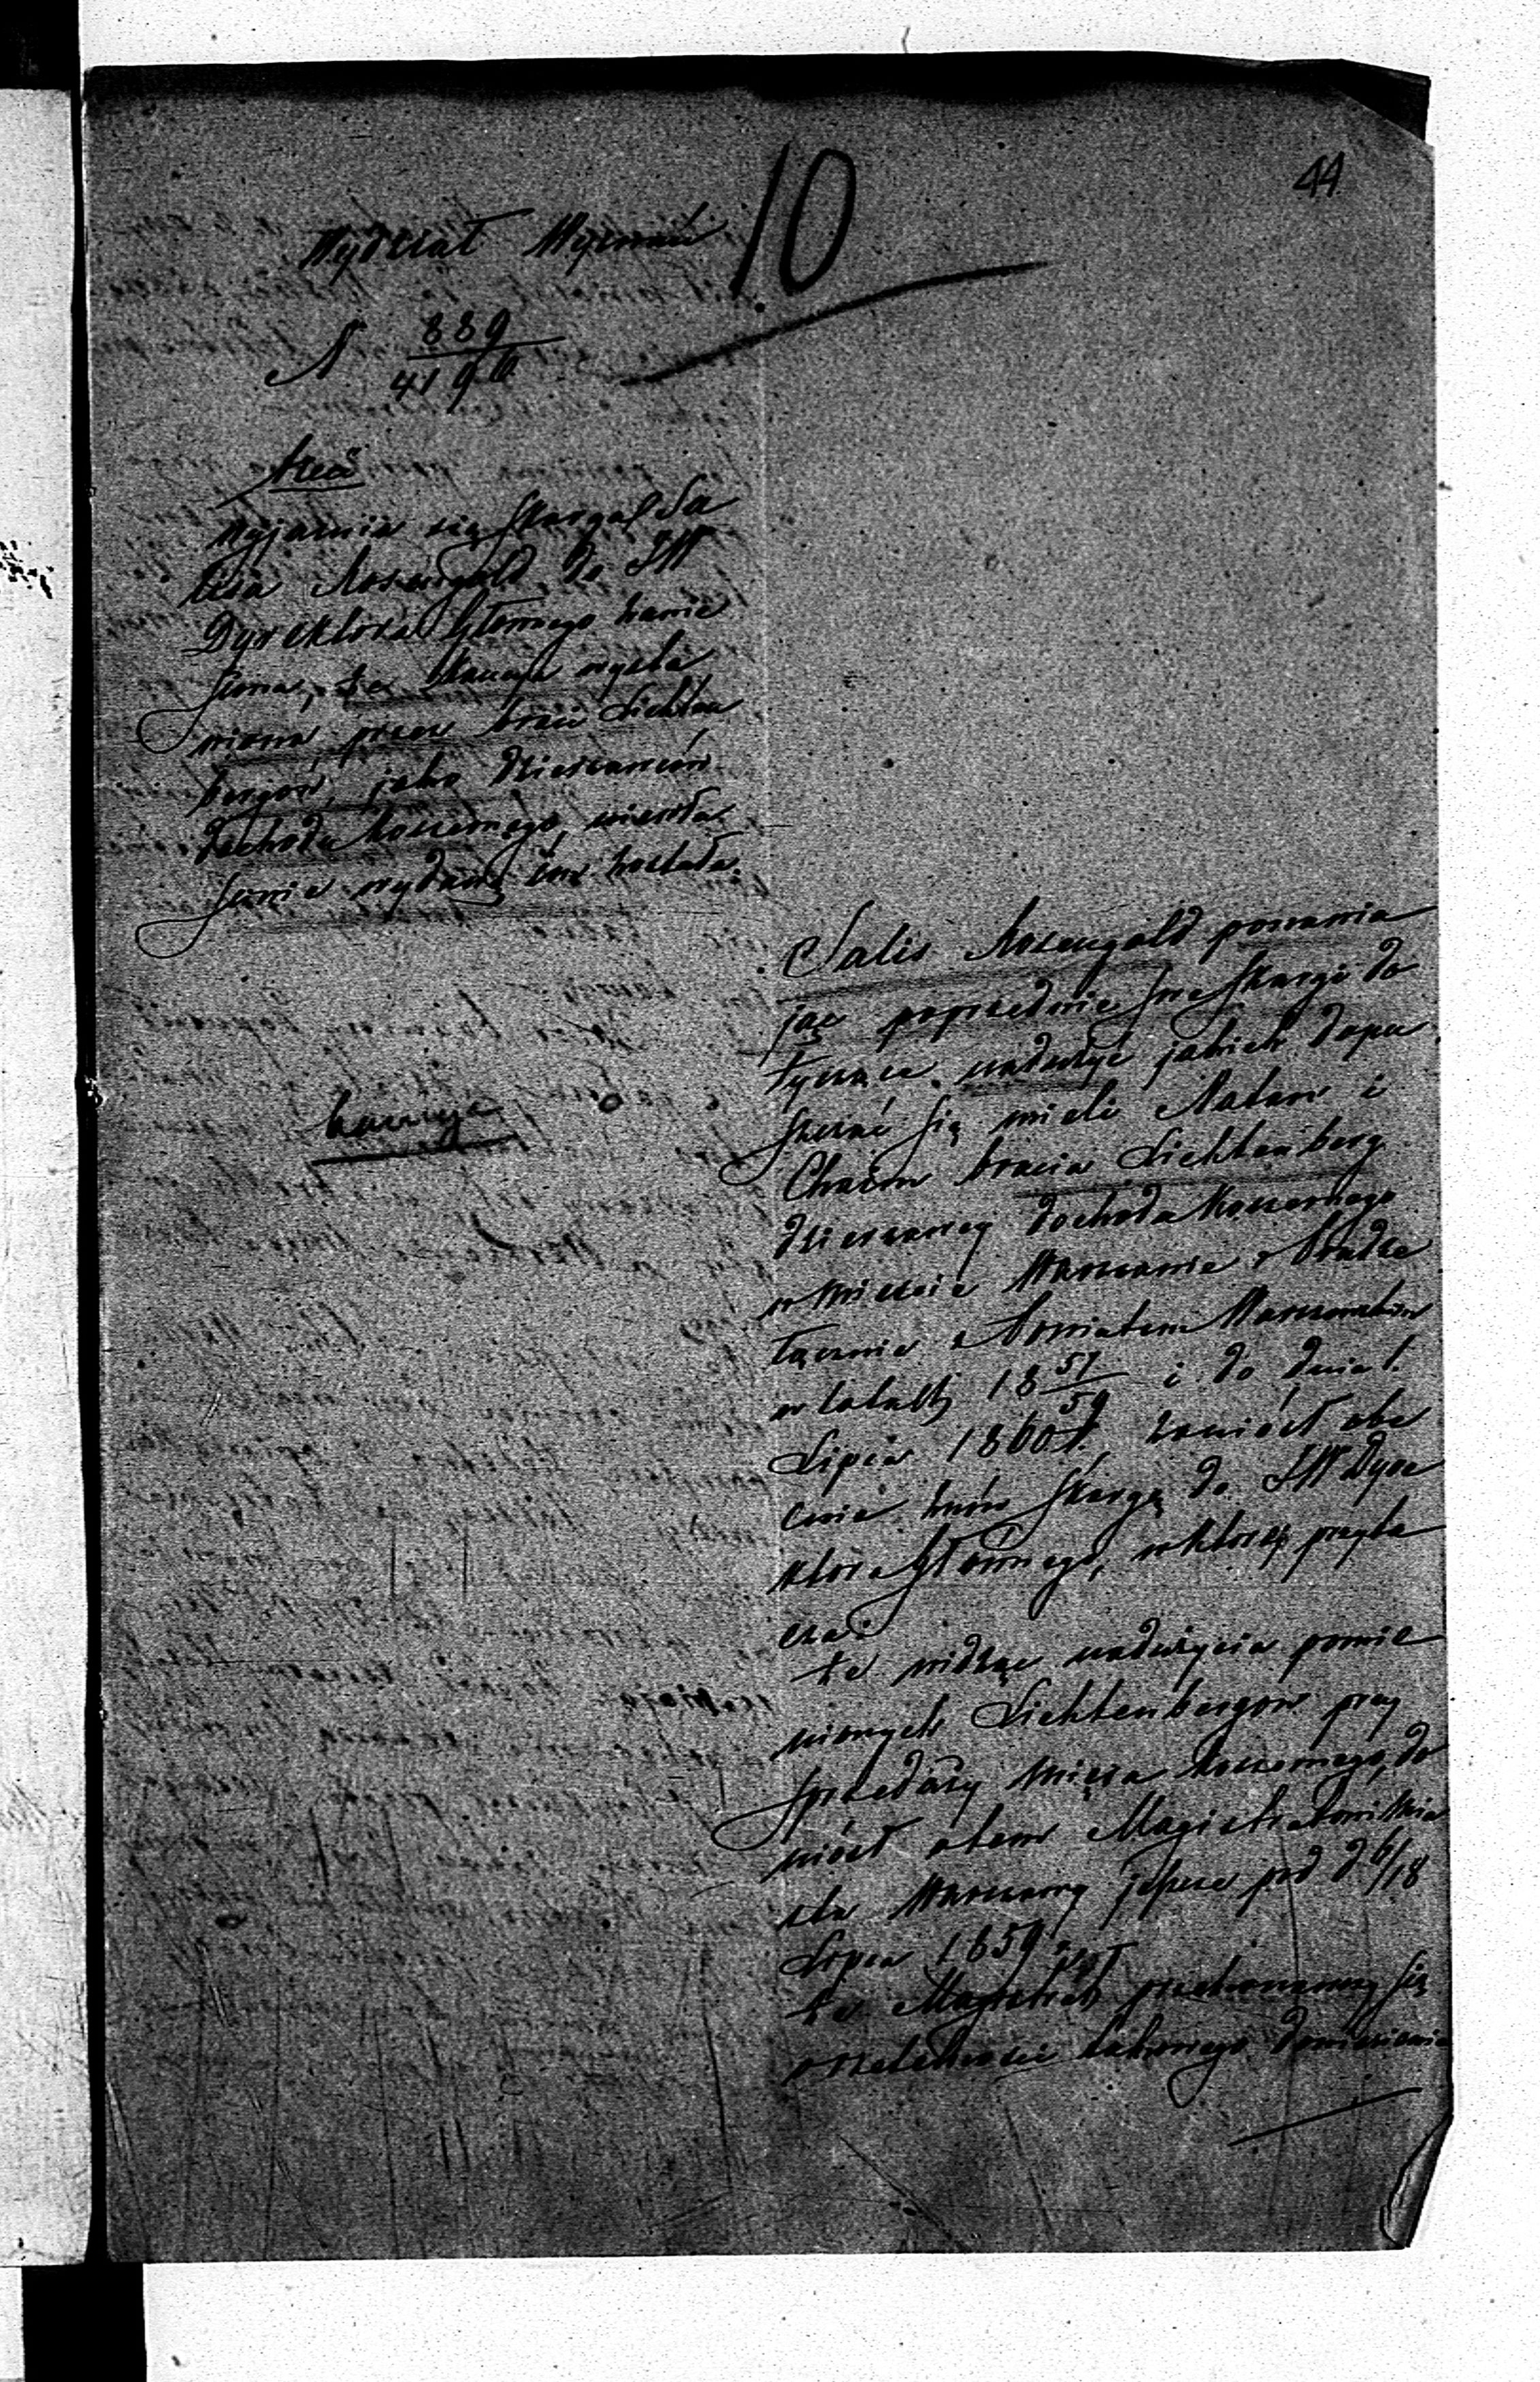 44
10
Wydział Wyznań
N 889/4196
Treść
Wyjaśnia się skarga Sa
lisa Rosengold do JW
Dyrektora Głównego zanie
siona, że kaucya wysta
wiona przez braci Lichten
bergów, jako dzierżawców
dochodu koszernego, niewła
ściwie wydaną im została.
kaucya
Salis Rosengold ponawia
jąc poprzednie swe skargi do
tyczące nadużyć jakich dopu
szczać się mieli Natan i
Chaim bracia Lichtenberg
dzierżawcy dochodu koszernego
w mieście Warszawie i Pradze
łącznie z Powiatem Warszawskim
w latach 18 57/59 i do dnia 1.
Lipca 1860 r., zaniósł obe
cnie znów skargę do JW Dyre
ktora Głównego, w której przyta
cza:
że widząc nadużycia pomie
nionych Lichtenbergów przy
sprzedaży mięsa koszernego, do
niósł o tem Magistratowi Mia
sta Warszawy jeszcze pod d 6/18
Lipca 1859 r.
że Magistrat przekonawszy się
o rzetelności takowego doniesienia